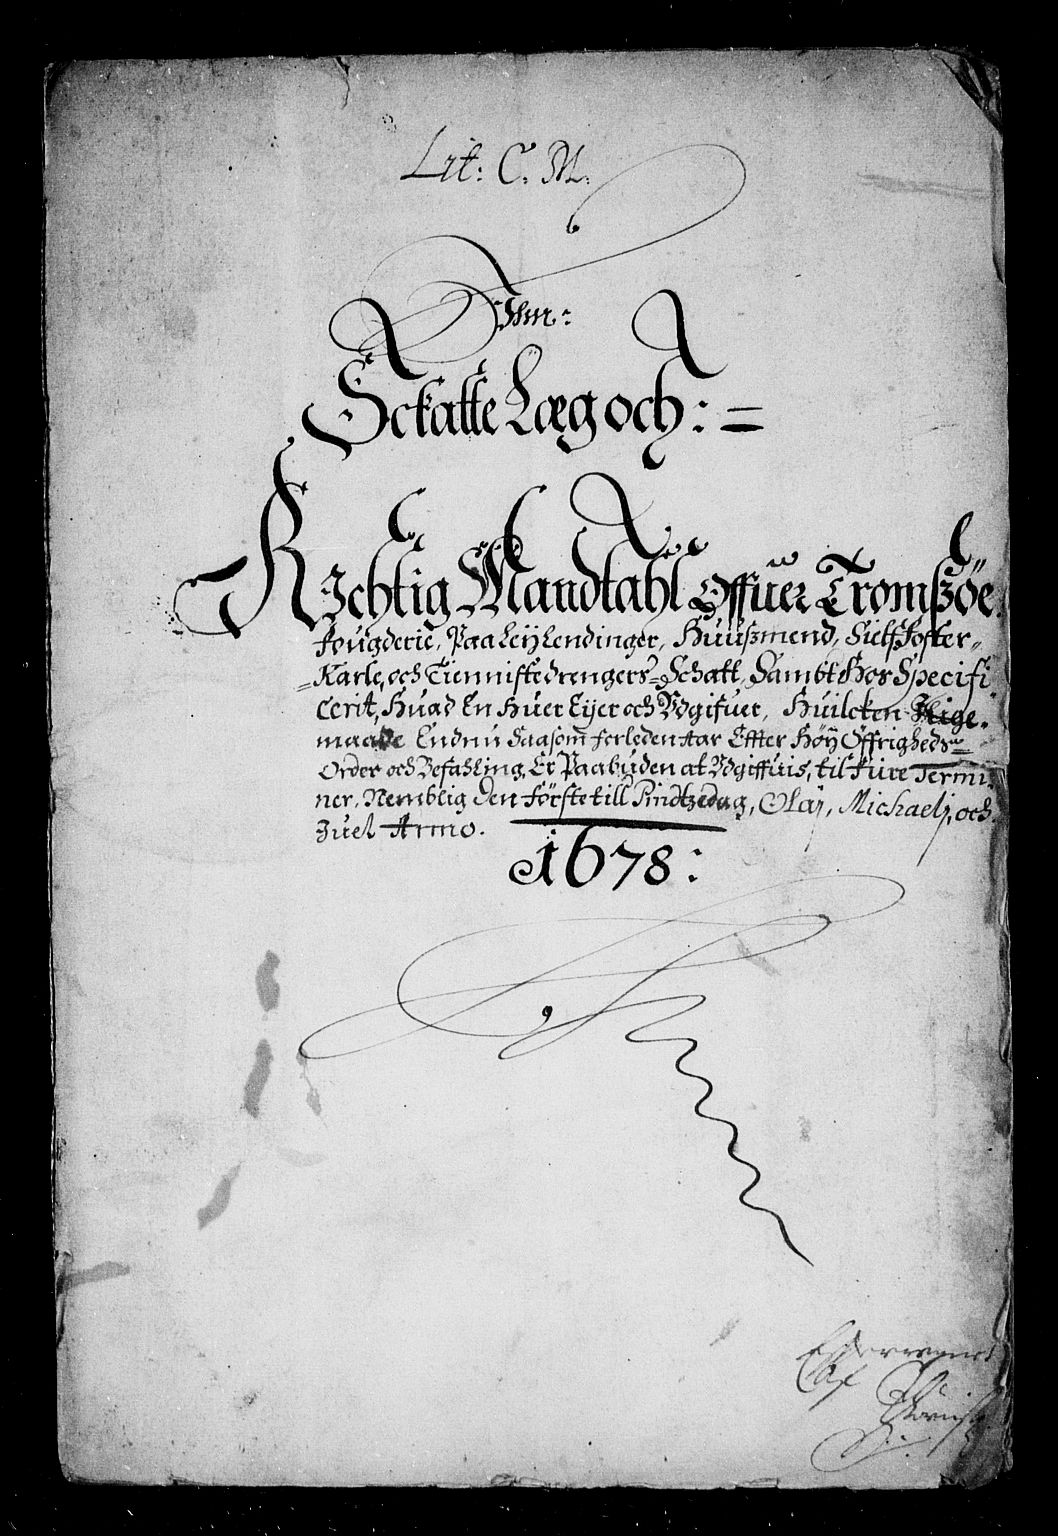 Lit: C. M.
Schatte Læg och: =
Richtig Mandtahl Offuer Tromszöe
Fougderie, Paa Leÿlendinger, Huuszmend, Sielffoster-
=Karle, och Tienniste drengers Schatt, Sambt Hos Specifi
Cerit, Huad En Huer Eÿer och Udgifuer, Huilcken Slige.
maade Endnu Saasom forleden Aar Effter Høÿ Öffrigheds=
Order och Befahling, Er Paabuden at Udgiffuis, til Fiire Termi
ner, Nemblig Den Förste till Pindtzedag, Olaj, Michaelj, och
Juel Anno.
1678: